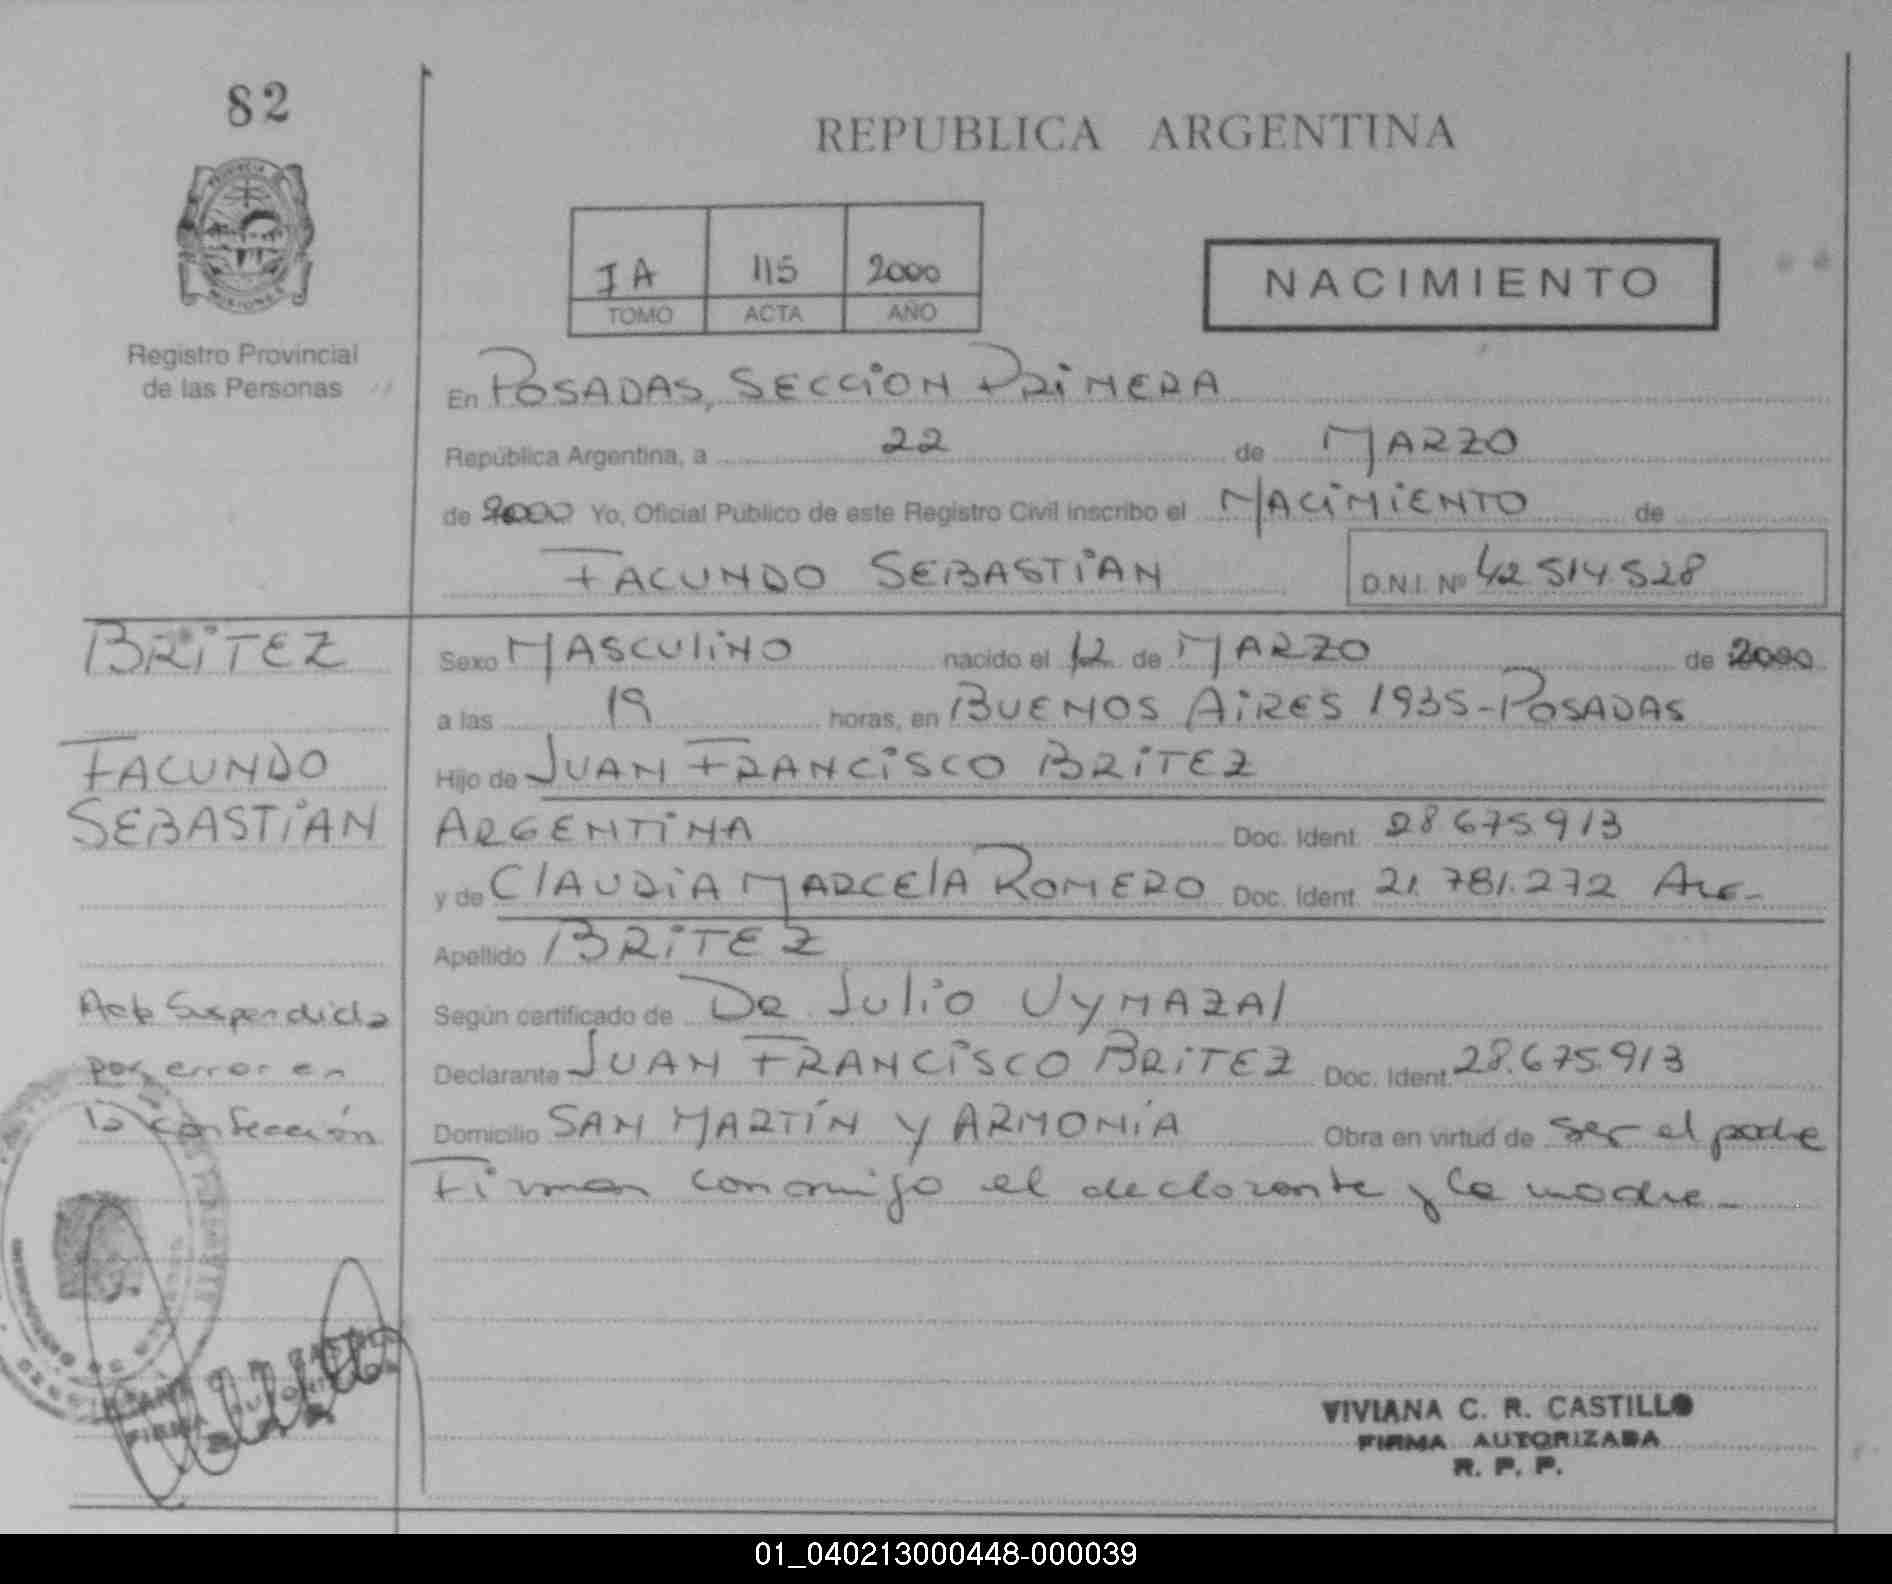 82
REPUBLICA ARGENTINA
PROVINCIA
MISIONES
Registro Provincial
de las Personas
IA 115 2000
TOMO ACTA AÑO
NACIMIENTO
En POSADAS, SECCION PRIMERA
República Argentina, a 22 de MARZO
de 2000 Yo, Oficial Público de este Registro Civil inscribo el NACIMIENTO de
FACUNDO SEBASTIAN D.N.I. Nº 42.514.528
BRITEZ
Sexo MASCULINO nacido el 12 de MARZO de 2000
a las 19 horas, en BUENOS AIRES 1935-POSADAS
FACUNDO
SEBASTIAN
Hijo de JUAN FRANCISCO BRITEZ
ARGENTINA Doc. Ident. 28.675.913
y de CLAUDIA MARCELA ROMERO Doc. Ident. 21.781.272
Apellido BRITEZ
Según certificado de De JULIO UYMAZAL
Declarante JUAN FRANCISCO BRITEZ Doc. Ident. 28.675.913
Domicilio SAN MARTÍN Y ARMONÍA Obra en virtud de ser el padre
Firman conmigo el declarante y la madre_
Acta Suspendida
por error en
la confección
FIRMA
VIVIANA C. R. CASTILLO
FIRMA AUTORIZADA
R. P. P.
01_040213000448-000039